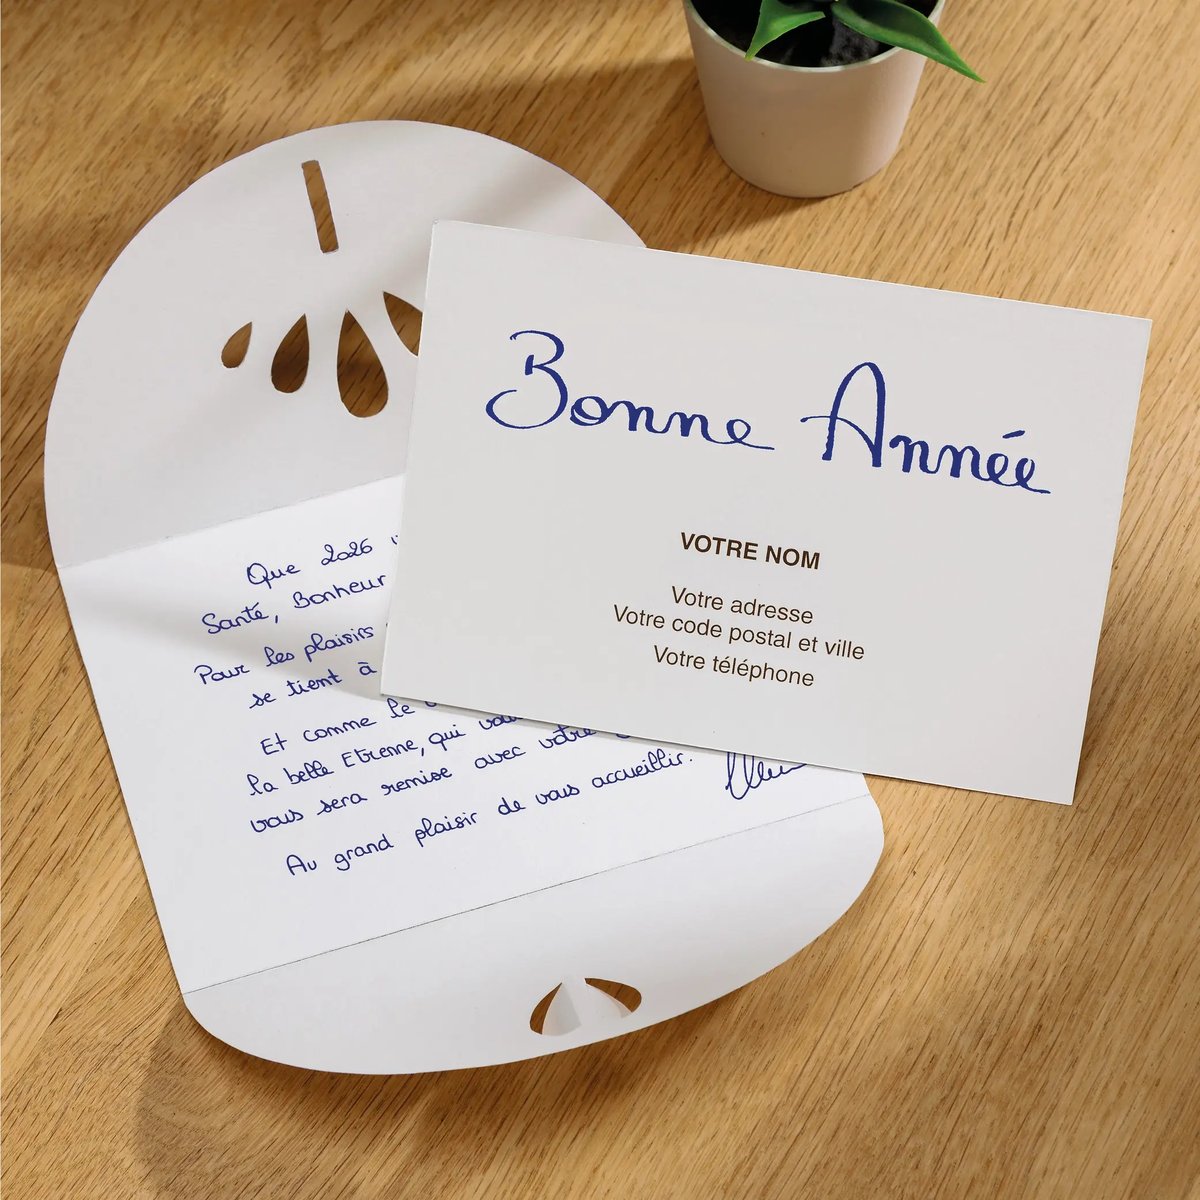 Bonne Année
VOTRE NOM
Votre adresse
Votre code postal et ville
Votre téléphone
Que 2026
Santé, Bonheur
Pour les plaisirs
se tient à
Et comme le
la belle Etrenne, qui
vous sera remise avec votre
Au grand plaisir de vous accueillir.